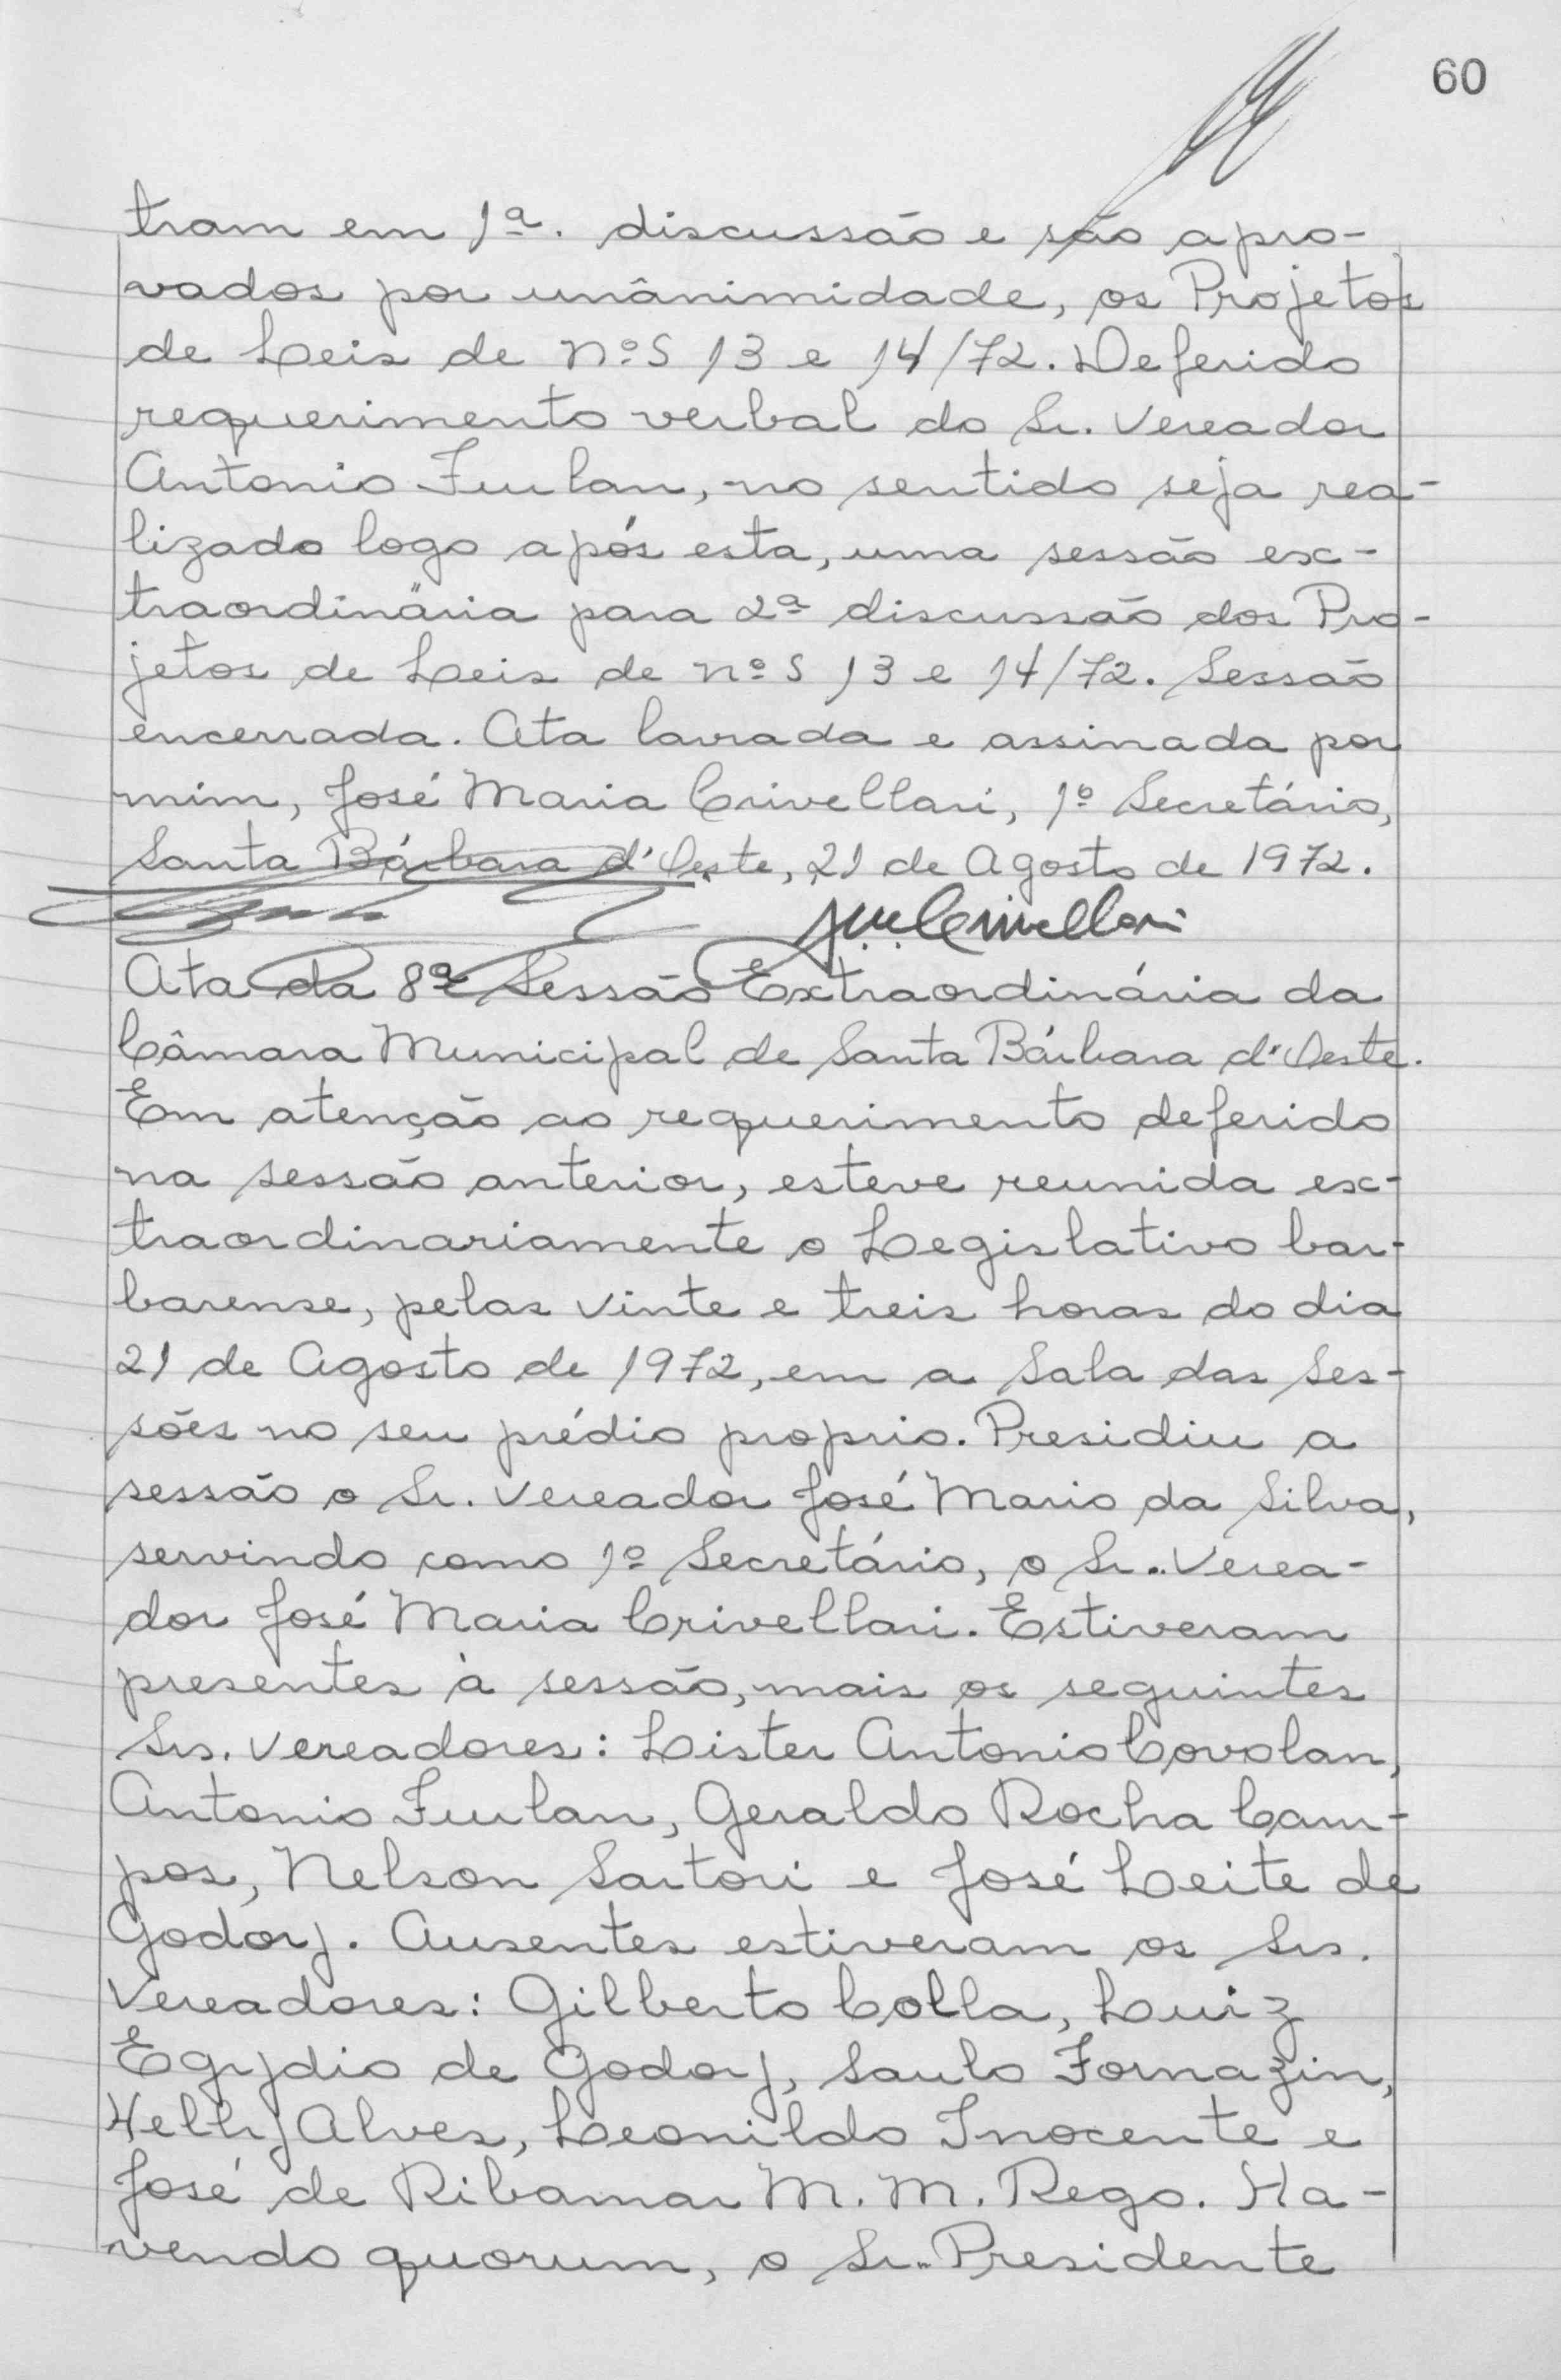 60
tram em 1ª. discussão e são apro-
vados por unânimidade, os Projetos
de Leis de nºs 13 e 14/72. Deferido
requerimento verbal do Sr. Vereador
Antonio Furlan, no sentido seja rea-
lizado logo após esta, uma sessão ex-
traordinária para 2ª discussão dos Pro-
jetos de Leis de nºs 13 e 14/72. Sessão
encerrada. Ata lavrada e assinada por
mim, José Maria Crivellari, 1º Secretário,
Santa Bárbara d'Oeste, 21 de Agosto de 1972.
Crivellari
Ata da 8ª Sessão Extraordinária da
Câmara Municipal de Santa Bárbara d'Oeste.
Em atenção ao requerimento deferido
na sessão anterior, esteve reunida ex-
traordinariamente o Legislativo bar-
barense, pelas vinte e treis horas do dia
21 de Agosto de 1972, em a Sala das Ses-
sões no seu prédio proprio. Presidiu a
sessão o Sr. Vereador José Mario da Silva,
servindo como 1º Secretário, o Sr. Verea-
dor José Maria Crivellari. Estiveram
presentes à sessão, mais os seguintes
Srs. Vereadores: Lister Antonio Covolan,
Antonio Furlan, Geraldo Rocha Cam-
pos, Nelson Sartori e José Leite de
Godoy. Ausentes estiveram os Srs.
Vereadores: Gilberto Colla, Luiz
Egydio de Godoy, Saulo Fornazin,
Helly Alves, Leonildo Inocente e
José de Ribamar M. M. Rego. Ha-
vendo quorum, o Sr. Presidente